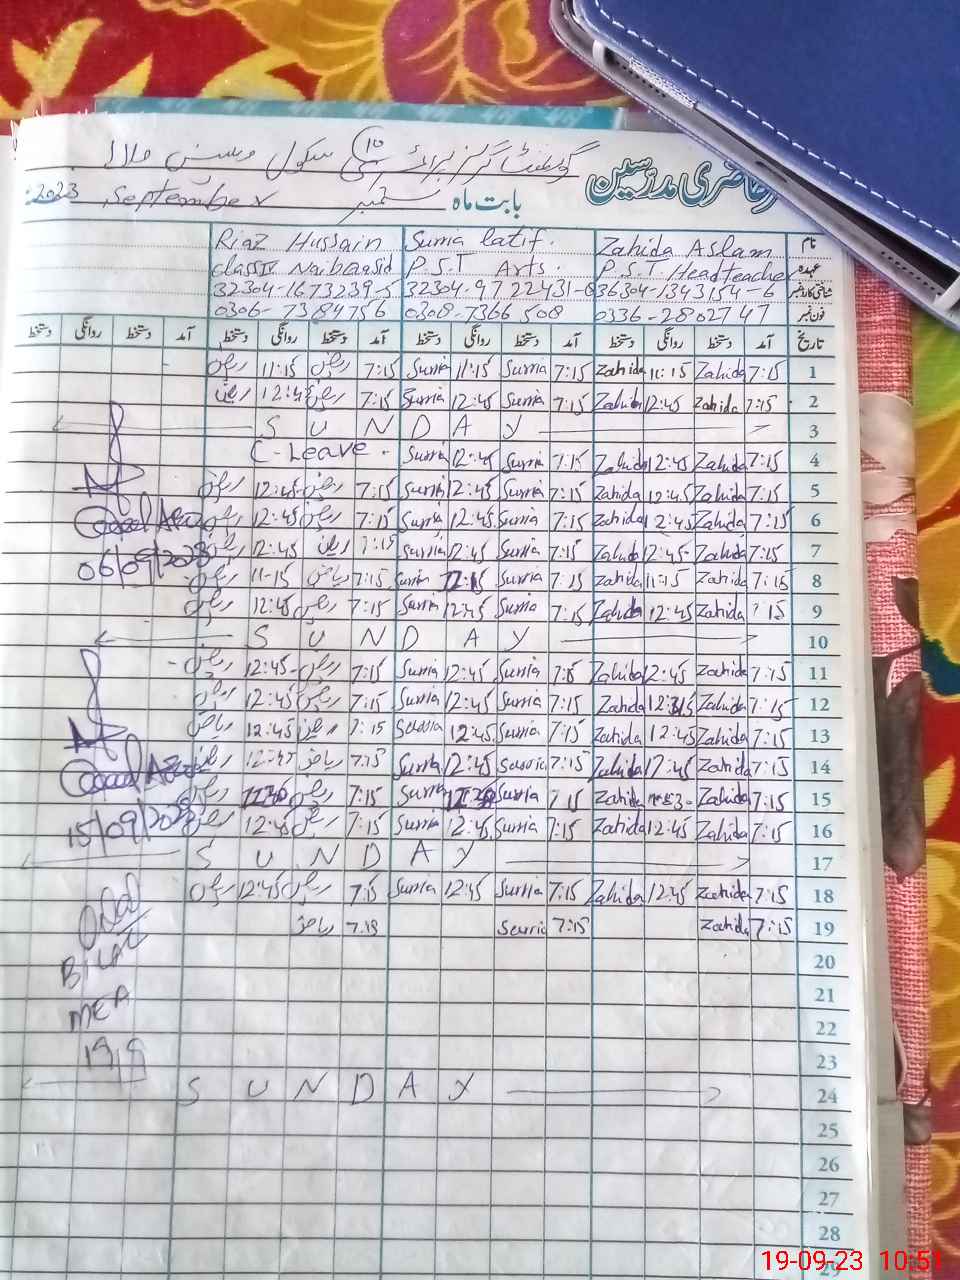 حاضری مدرسین گورنمنٹ گرلز برائمری سکول
بابت ماہ ستمبر September 2023
نام Zahida Aslam Surria latif. Riaz Hussain
عہدہ P.S.T Headteacher P.S.T Arts. Class IV Naib Qasid
شناختی کارڈ نمبر 36304-1343154-6 32304-9722431-8 32304-1673239-5
فون نمبر 0336-2802747 0308-7366508 0306-7384756
تاریخ آمد دستخط روانگی دستخط آمد دستخط روانگی دستخط آمد دستخط روانگی دستخط آمد دستخط روانگی دستخط
1 7:15 Zahida 11:15 Zahida 7:15 Surria 11:15 Surria 7:15 ریاض 11:15 ریاض
2 7:15 Zahida 12:45 Zahida 7:15 Surria 12:45 Surria 7:15 ریاض 12:45 ریاض
3 SUNDAY
4 7:15 Zahida 12:45 Zahida 7:15 Surria 12:45 Surria C-Leave.
5 7:15 Zahida 12:45 Zahida 7:15 Surria 12:45 Surria 7:15 ریاض 12:45 ریاض
6 7:15 Zahida 12:45 Zahida 7:15 Surria 12:45 Surria 7:15 ریاض 12:45 ریاض
7 7:15 Zahida 12:45 Zahida 7:15 Surria 12:45 Surria 7:15 ریاض 12:45 ریاض
06/09/2023
8 7:15 Zahida 11:15 Zahida 7:15 Surria 7:15 ریاض 11-15 ریاض
9 7:15 Zahida 12:45 Zahida 7:15 Surria 12:45 Surria 7:15 ریاض 12:45 ریاض
10 SUNDAY
11 7:15 Zahida 12:45 Zahida 7:15 Surria 12:45 Surria 7:15 ریاض 12:45 ریاض
12 7:15 Zahida Zahida 7:15 Surria 12:45 Surria 7:15 ریاض 12:45 ریاض
13 7:15 Zahida 12:45 Zahida 7:15 Surria 12:45 Surria 7:15 ریاض 12:45 ریاض
14 7:15 Zahida 12:45 Zahida 7:15 Surria 12:45 Surria 7:15 ریاض 12:45 ریاض
15 7:15 Zahida Zahida 7:15 Surria Surria 7:15 ریاض ریاض
16 7:15 Zahida 12:45 Zahida 7:15 Surria 12:45 Surria 7:15 ریاض 12:45 ریاض
15/09/2023
17 SUNDAY
18 7:15 Zahida 12:45 Zahida 7:15 Surria 12:45 Surria 7:15 ریاض 12:45 ریاض
19 7:15 Zahida 7:15 Surria 7:15 ریاض
20
BILAL
21
MEA
22
23
19/9
24 SUNDAY
25
26
27
28
29
19-09-23 10:51